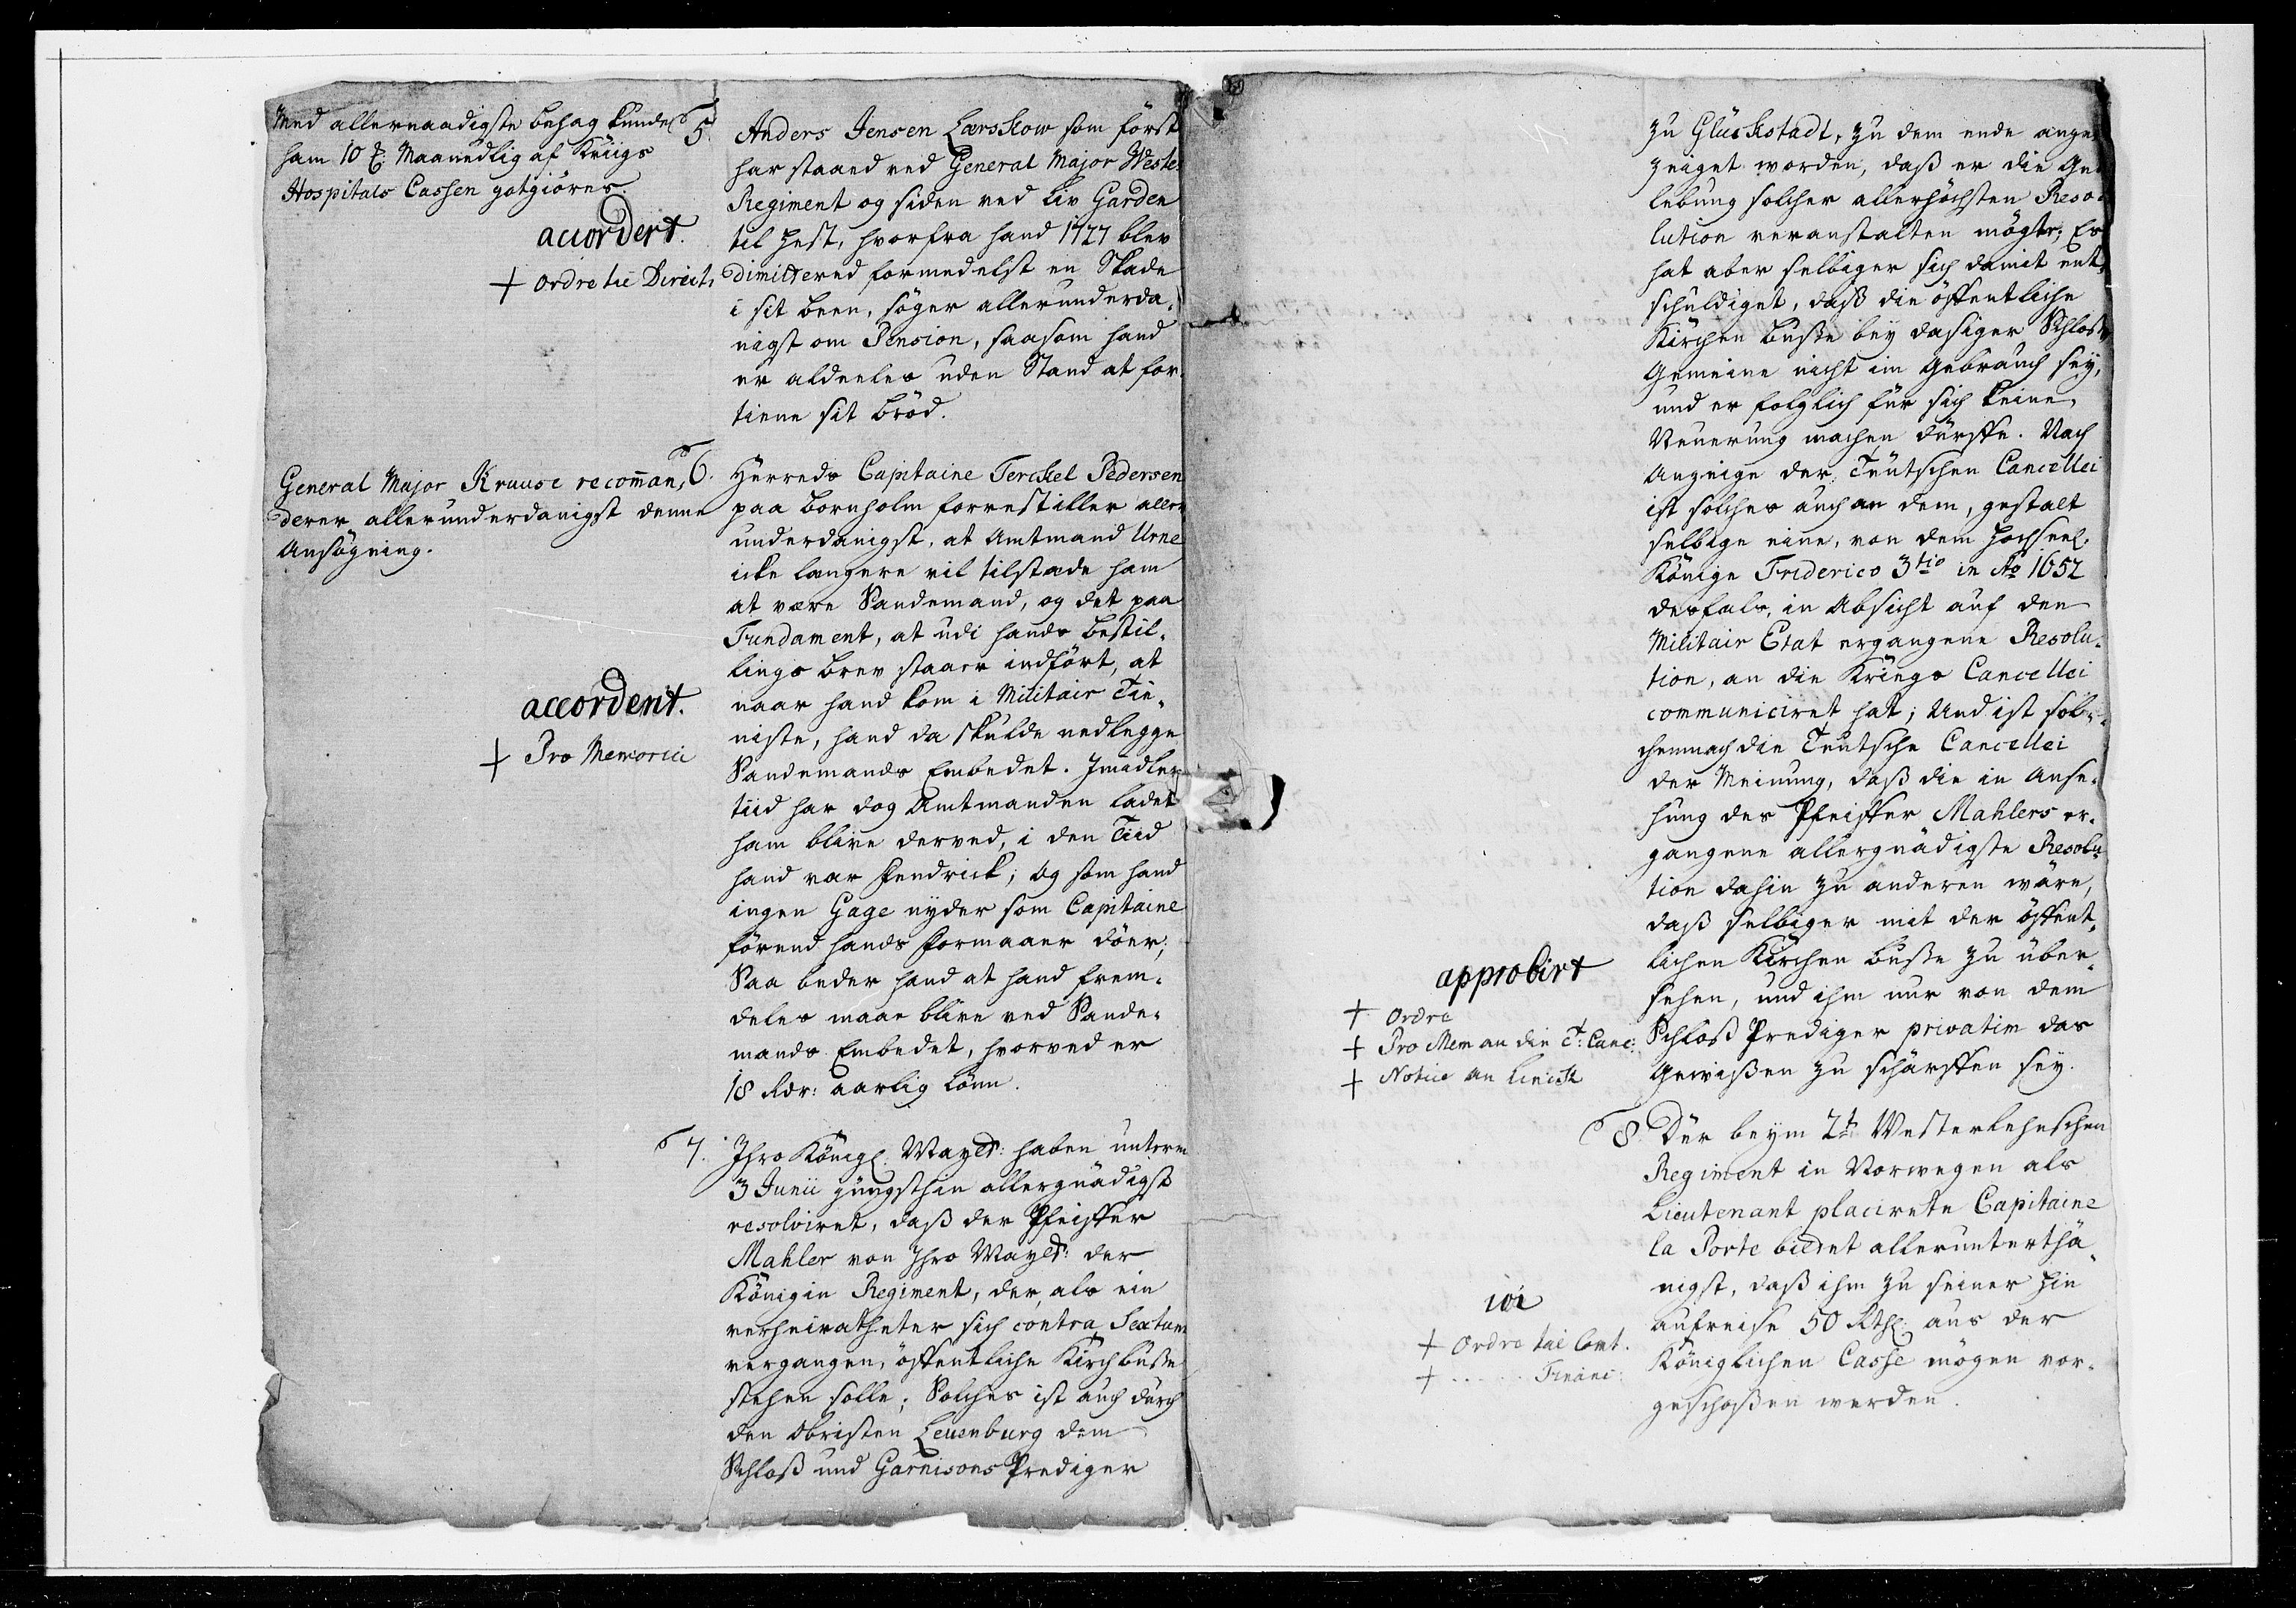 Med allernaadigste behag kunde
ham 10 ß: Maanedlig af Kriigs
Hospitals Cassen gotgiöres.
accordert.
+ Ordre til Direct:
5. Anders Jensen Larskow som först
har staaed ved General Major Weste:
Regiment og siden ved Liv Garden
til Hest, hvorfra hand 1727 blev
dimittered formedelst en Skade
i sit been, söger allerunderda-
nigst om Pension, saasom hand
er aldeeles uden Stand at for-
tiene sit bröd.
General Major Kruuse recomman-
derer allerunderdanigst denne
Ansögning.
accordert.
+ Pro Memoria
6. Herreds Capitaine Terckel Pedersen
paa Bornholm forrestiller aller-
underdanigst, at Amtmand Urne
icke længere vil tilstæde ham
at være Sandemand, og det paa
Fundament, at udi hands bestil-
lings brev staaer indfört, at
naar hand kom i Militair Tie-
niste, hand da skulde nedlegge
Sandemands Embedet. Imidler-
tiid har dog Amtmanden ladet
ham blive derved, i den Tiid
hand var Fendrick; og som hand
ingen Gage nyder som Capitaine
förend hands Formaaer döer;
Saa beder hand at hand frem-
deeles maae blive ved Sande-
mands Embedet, hvorved er
18 Rdr: aarlig Lönn.
7. Ihro Königl. Mayst: haben unterm
3 Junii jüngsthin allergnädigst
resolviret, daß der Pfeiffer
Mahler von Ihro Mayst: der
Königin Regiment, der, als ein
verheiratheter sich contra Sextum
vergangen, öffentliche Kirchbuße
stehen solle; Solches ist auch durch
den Obristen Leuenburg dem
Schloß und Garnisons Prediger
zu Glückstadt, zu dem ende ange-
zeiget worden, daß er die Ge-
lebung solcher allerhöchsten Reso-
lution veranstalten mögte; Es
hat aber selbiger sich damit ent-
schuldiget, daß die öffentliche
Kirchen buße bey dasiger Schloß
Gemeine nicht im Gebrauch sey,
und er folglich für sich keine
Neuerung machen dürffe. Nach
Anzeige der Teutschen Cancellei
ist solches auch an dem, gestalt
selbige eine, von dem Hochseel.
Könige Friderico 3tio in Ao 1652
desfals, in Absicht auf den
Militair Etat ergangene Resolu-
tion, an die Kriegs Cancellei
communiciret hat; Und ist sol-
chemnach die Teutsche Cancellei
der Meinung, daß die in Anse-
hung des Pfeiffer Mahlers er-
gangene allergnädigste Resolu-
tion dahin zu anderen wäre,
daß selbiger mit der öffent-
lichen Kirchen buße zu über-
sehen, und ihm nur von dem
Schloß Prediger privatim das
Gewißen zu schärffen sey.
approbirt
+ Ordre
+ Pro Mem an die T: Canc:
+ Notice an
8. Der beym 2t Westerlehnschen
Regiment in Norwegen als
Lieutenant placirete Capitaine
la Porte bietet alleruntertha-
nigst, daß ihm zu seiner Hin
aufreise 50 Rthl: aus der
Königlichen Casse mögen vor-
geschoßen werden.
+ Ordre
+ . . . . . .